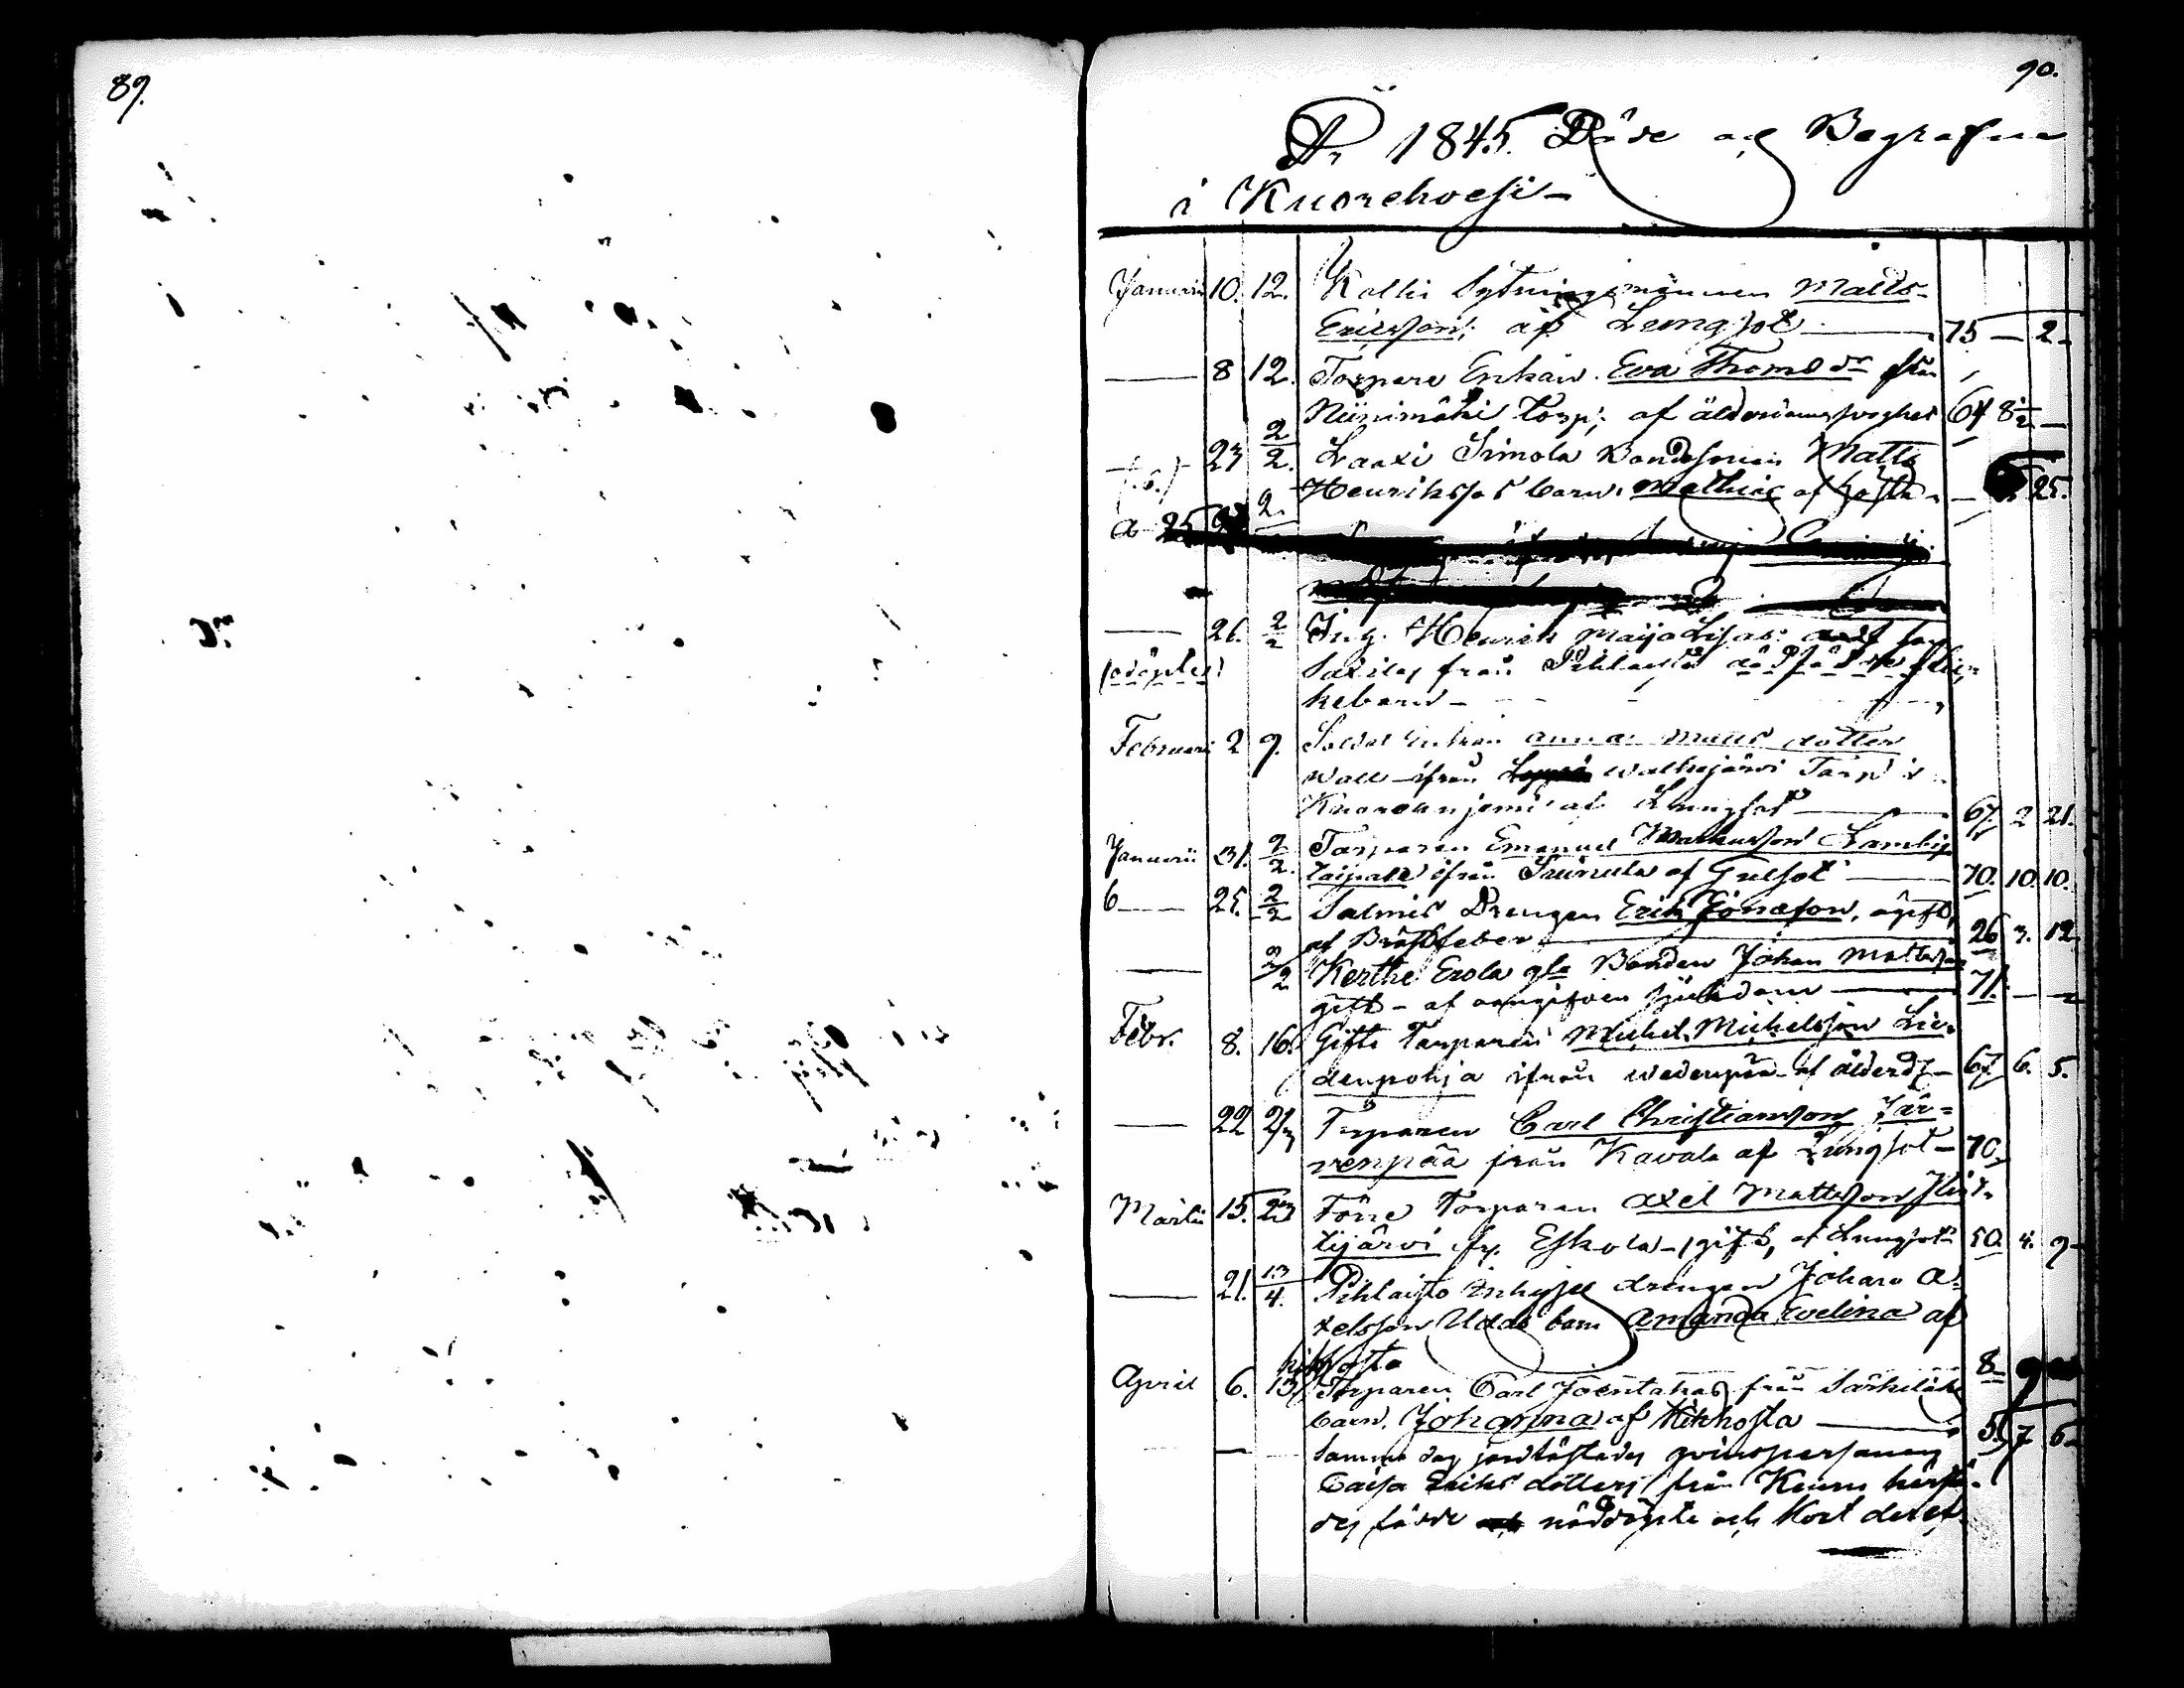 89.
90.
År 1845. Döde och Begrafne
i Kuorehvesi
Januarii 10. 12. Kallis Sytningsmannen Matts
Ericsson; af Lungsot 75 — 2.
— 8 12. Torpare Enkan Eva Thomsdr från
Niinimäki Torp; af ålderdoms 64 8½ —
23 2/2. Laaxi Simola Bondesonen Matts
Henrikssos barn Mathias af hosta — 25.
a 25 2.
— 26. 2/2 Inh. Henrik Maija Lisas
(odöpte) från Pihlaisto dödfödde flic-
kebarn
Februari 2 9. Soldat Enkan Anna Matts dotter
Wall ifrån Walkejärvi Torp i
af Lungsot 67. 2 21.
Januarii 31. 2/2. Torparen Emanuel Markusson Lambi
taipale ifrån af Gulsot 70. 10. 10.
6 — 25. 2/2 Salmis Drengen Erik Jonasson, ogift,
af Bröstfeber 26 3. 12
— 2/2 Kerthe Erola gle Bonden Johan Mattsson
gift – af oangifven sjukdom 71. — —
Febr. 8. 16. Gifte Torparen Michel Michelsson Lie-
denpohja ifrån Wedenpää af ålderds 67. 6. 5.
— 22 2/3 Torparen Carl Christiansson Jär-
venpää från Kavala af Lungsot — 70
Martii 15. 23 Förre Torparen Axel Mattsson
tijärvi fr. Eskola – gift, af Lungsot 50. 4. 9
— 21. 13/4. Pihlaisto Inhyses drengen Johan A-
xelsson Udds barn Amanda Evelina af
kikhosta 8 9
April 6. 13 Torparen Carl Joentakas från Särkilak
barn Johanna af Kikhosta 5. 7 6
— Samma dag jordfästades qvinspersonen
Caisa Eriks dotters från Keuru härstä-
des födde nöddöpte och kort deref-